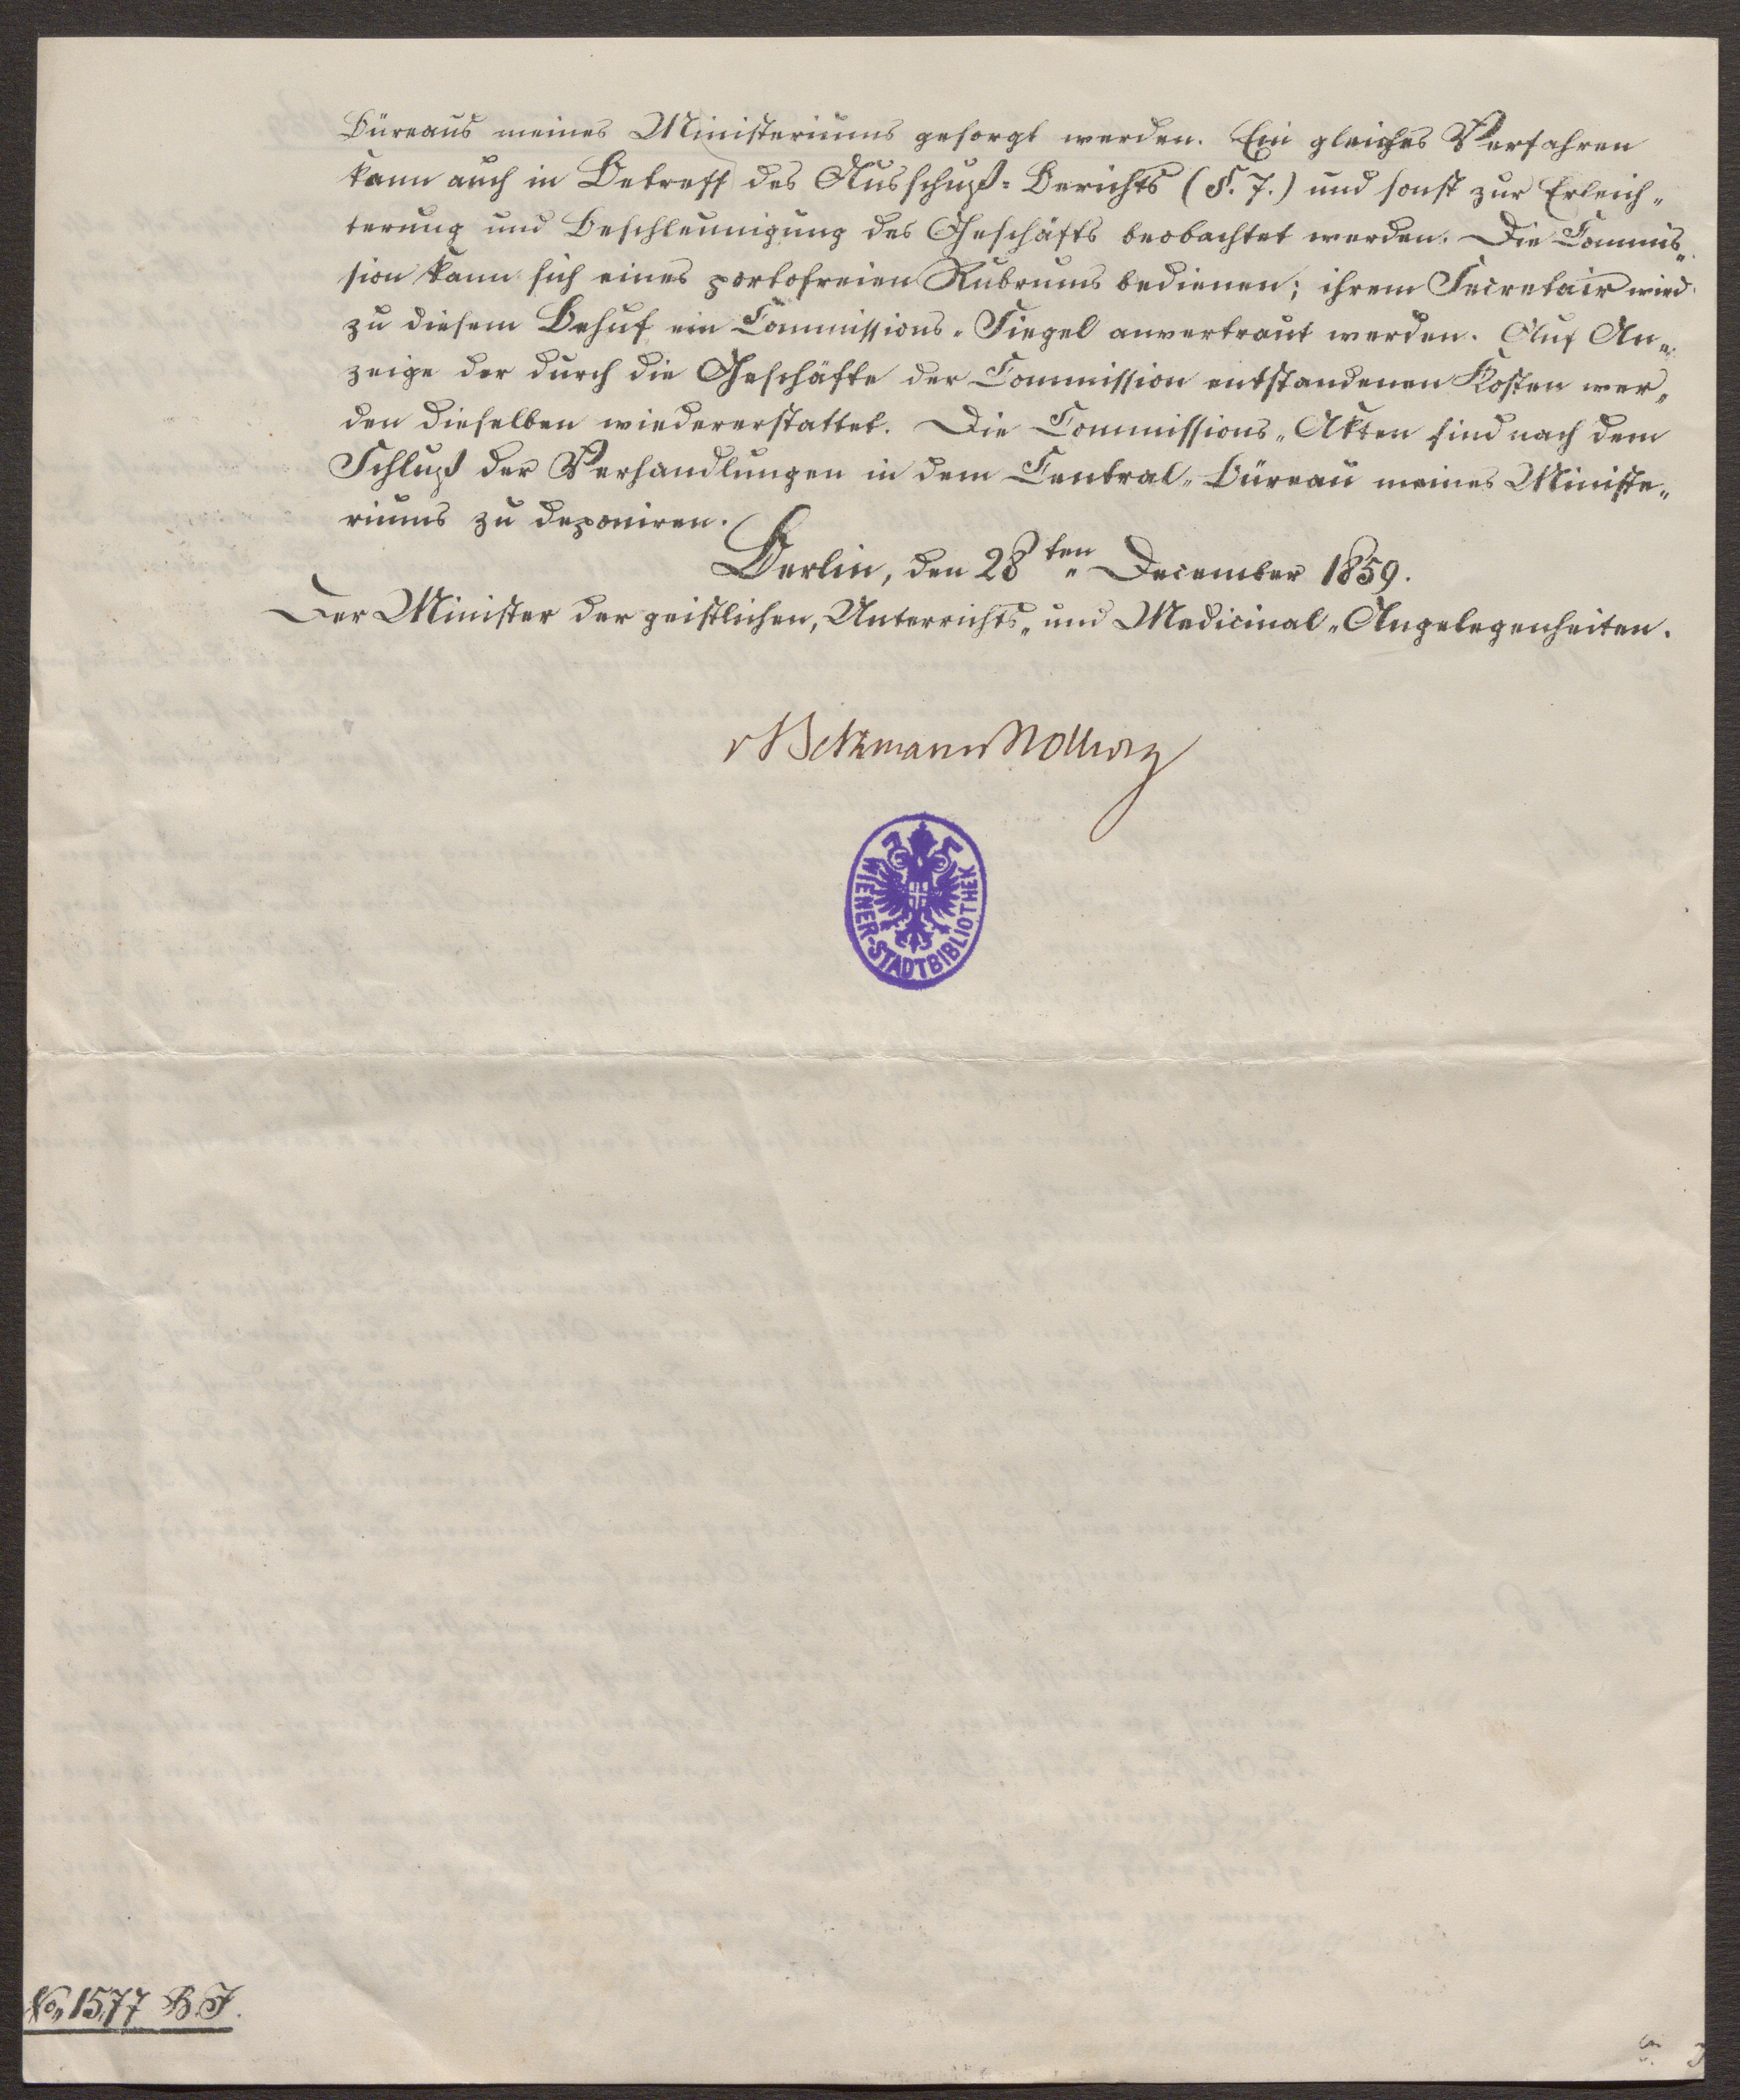 Büreaus meines Ministeriums gesorgt werden. Ein gleiches Verfahren
kann auch in Betreff des Ausschuß-Berichts (§. 7.) und sonst zur Erleich-
terung und Beschleunigung des Geschäfts beobachtet werden. Die Commis-
sion kann sich eines portofreien Rubrums bedienen; ihrem Secretair wird
zu diesem Behuf ein Commissions-Siegel anvertraut werden. Auf An-
zeige der durch die Geschäfte der Commission entstandenen Kosten wer-
den dieselben wiedererstattet. Die Commissions-Akten sind nach dem
Schluß der Verhandlungen in dem Central-Büreau meines Ministe-
riums zu deponiren.
Berlin, den 28ten December 1859.
Der Minister der geistlichen, Unterrichts- und Medicinal-Angelegenheiten.
v Bethmann Hollweg
WIENER-STADTBIBLIOTHEK
No, 1577 B.J.